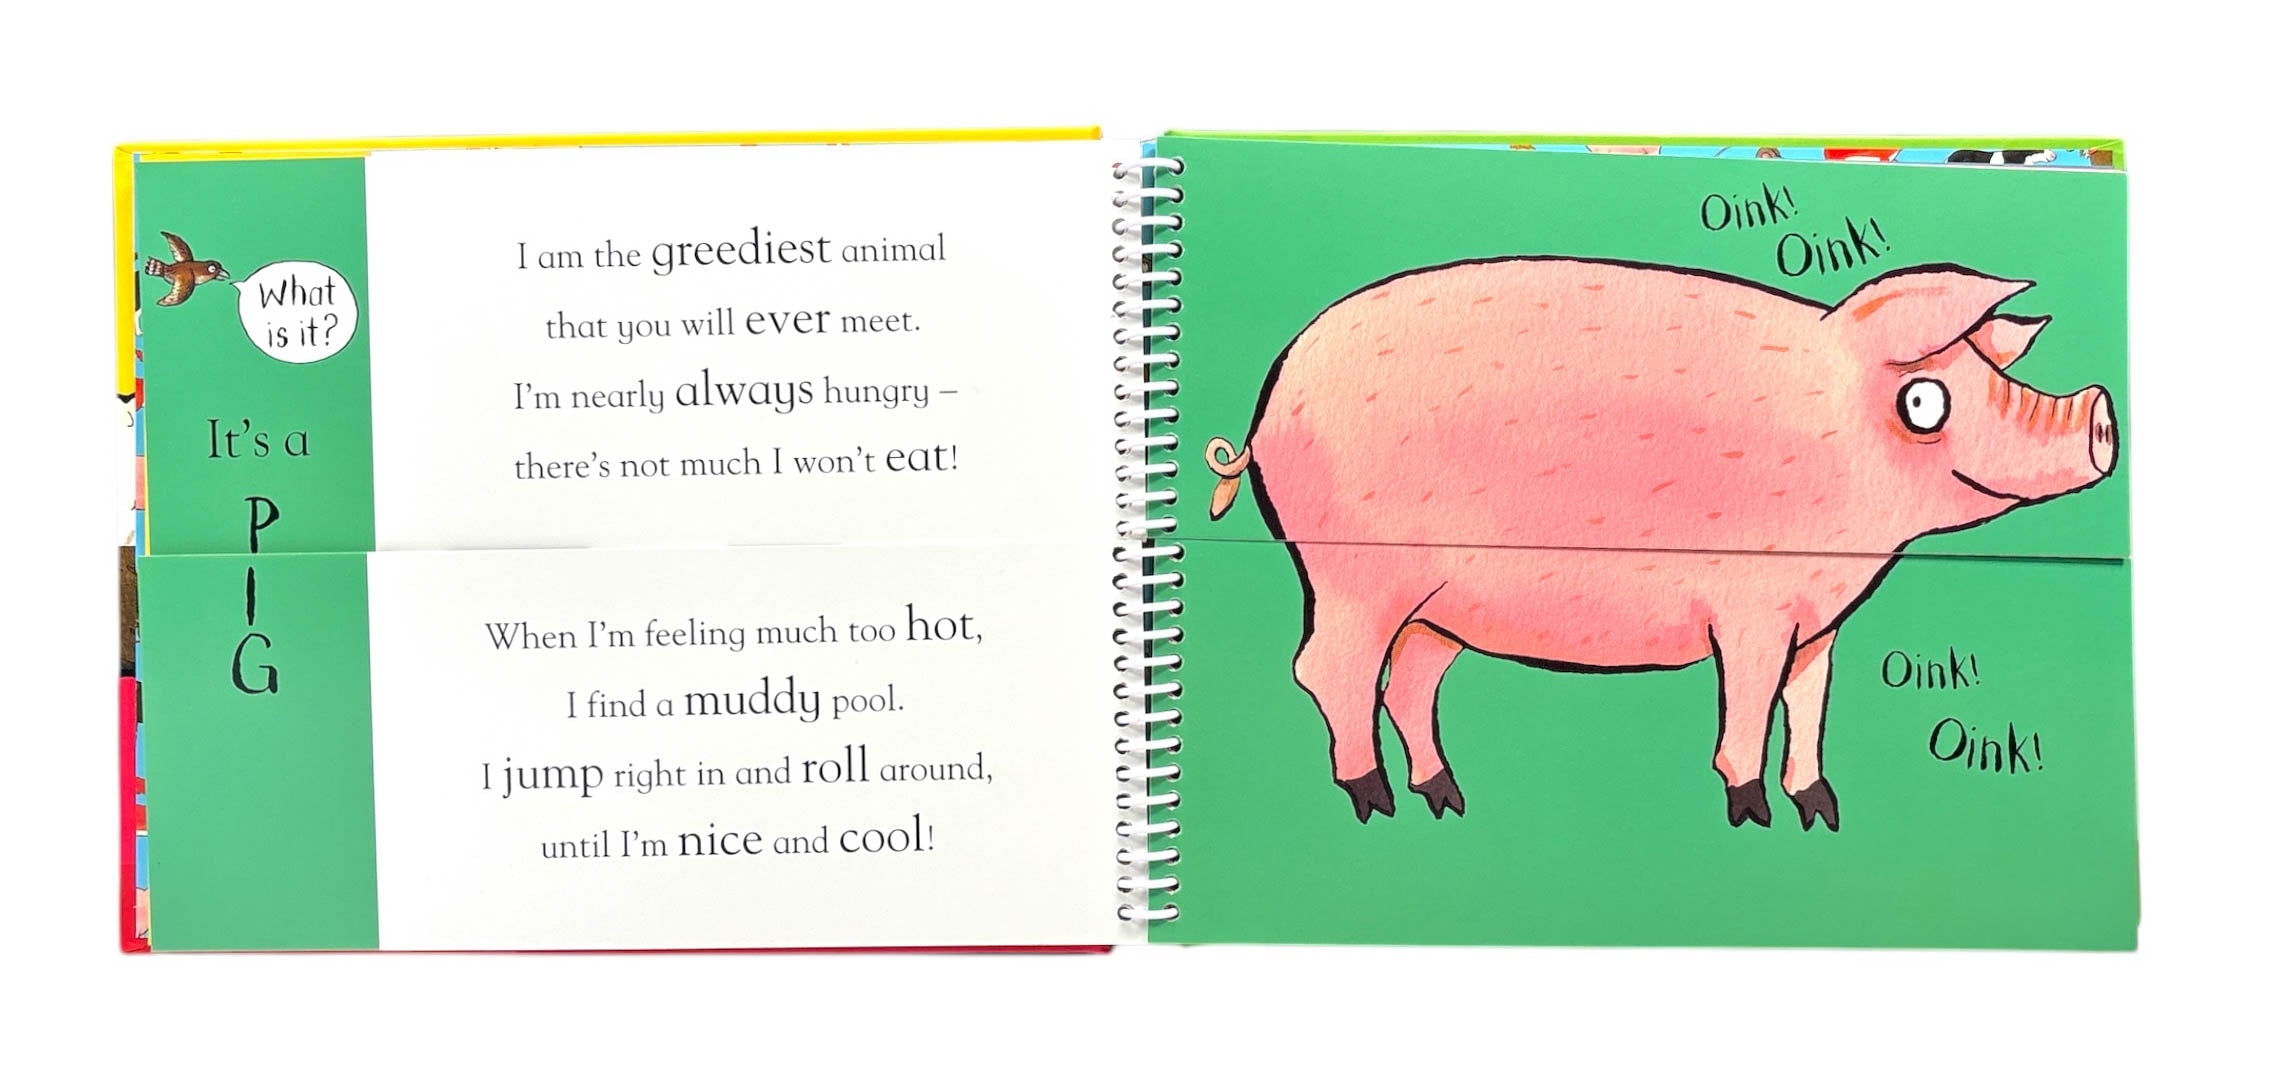 What
is it?
It's a
P
I
G
I am the greediest animal
that you will ever meet.
I'm nearly always hungry –
there's not much I won't eat!
When I'm feeling much too hot,
I find a muddy pool.
I jump right in and roll around,
until I'm nice and cool!
Oink!
Oink!
Oink!
Oink!